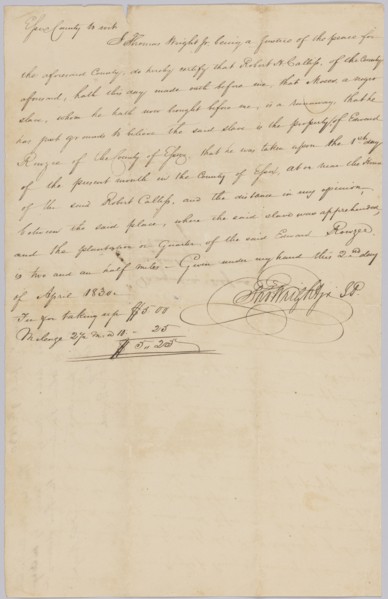 Essex County to wit
I Thomas Wright Jr being a Justice of the peace for
the aforesaid County, do hereby certify that Robert B. Callis, of the County
aforesaid, hath this day made oath before me, that Moses a negro
slave, whom he hath now brought before me, is a runaway, that he
has just grounds to believe the said slave is the property of Edward
Rowzee of the County of Essex, that he was taken upon the 1st day
of the present month in the County of Essex, at or near the House
of the said Robert Callis, and the distance in my opinion,
between the said place, where the said slave was apprehended,
and the plantation or Quarter of the said Edward Rowzee,
is two and an half miles - Given under my hand this 2nd day
of April 1830.
For taking up $5.00
Mileage 2½ - 25
$5.25
Tho Wright Jr J.P.